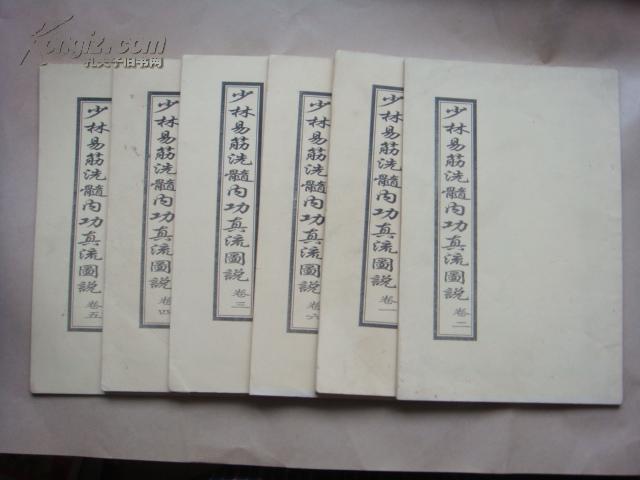 Kongfz.com
孔夫子旧书网
少林易筋洗髓內功真流圖説 卷五
少林易筋洗髓內功真流圖説 卷四
少林易筋洗髓內功真流圖説 卷三
少林易筋洗髓內功真流圖説 卷六
少林易筋洗髓內功真流圖説 卷一
少林易筋洗髓內功真流圖説 卷二